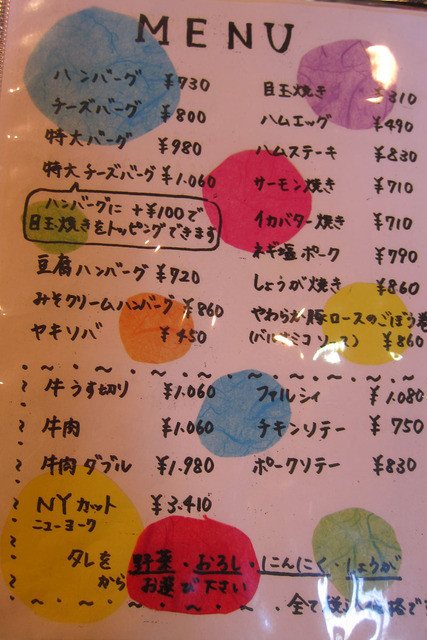 MENU
ハンバーグ ¥730
チーズバーグ ¥800
特大バーグ ¥980
特大チーズバーグ ¥1.060
ハンバーグに +¥100で
目玉焼きをトッピングできます
豆腐ハンバーグ ¥720
みそクリームハンバーグ ¥860
ヤキソバ ¥450
目玉焼き ¥310
ハムエッグ ¥490
ハムステーキ ¥830
サーモン焼き ¥710
イカバター焼き ¥710
ネギ塩ポーク ¥790
しょうが焼き ¥860
やわらか豚ロースのごぼう巻
(バルサミコソース) ¥860
牛うす切り ¥1.060
牛肉 ¥1.060
牛肉ダブル ¥1.980
NYカット ¥3.410
ニューヨーク
ファルシィ ¥1.080
チキンソテー ¥750
ポークソテー ¥830
タレを 野菜・おろし・にんにく・しょうが
から お選び下さい
・全て税込価格で